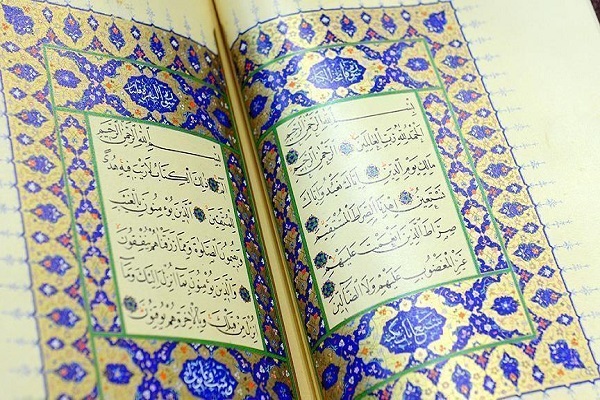 بِسْمِ اللّٰهِ الرَّحْمٰنِ الرَّحِيمِ
اَلْحَمْدُ لِلّٰهِ رَبِّ الْعَالَمِينَ اَلرَّحْمٰنِ الرَّحِيمِ
مَالِكِ يَوْمِ الدِّينِ اِيَّاكَ نَعْبُدُ وَاِيَّاكَ
نَسْتَعِينُ اِهْدِنَا الصِّرَاطَ الْمُسْتَقِيمَ
صِرَاطَ الَّذِينَ اَنْعَمْتَ عَلَيْهِمْ
غَيْرِ الْمَغْضُوبِ عَلَيْهِمْ وَلَا الضَّالِّينَ
سورة البقرة
بِسْمِ اللّٰهِ الرَّحْمٰنِ الرَّحِيمِ
الٓمٓ ذٰلِكَ الْكِتَابُ لَا رَيْبَ فِيهِ هُدًى
لِلْمُتَّقِينَ اَلَّذِينَ يُؤْمِنُونَ بِالْغَيْبِ
وَيُقِيمُونَ الصَّلٰوةَ وَمِمَّا رَزَقْنَاهُمْ يُنْفِقُونَ
وَالَّذِينَ يُؤْمِنُونَ بِمَا اُنْزِلَ اِلَيْكَ وَمَا
اُنْزِلَ مِنْ قَبْلِكَ وَبِالْاٰخِرَةِ هُمْ يُوقِنُونَ